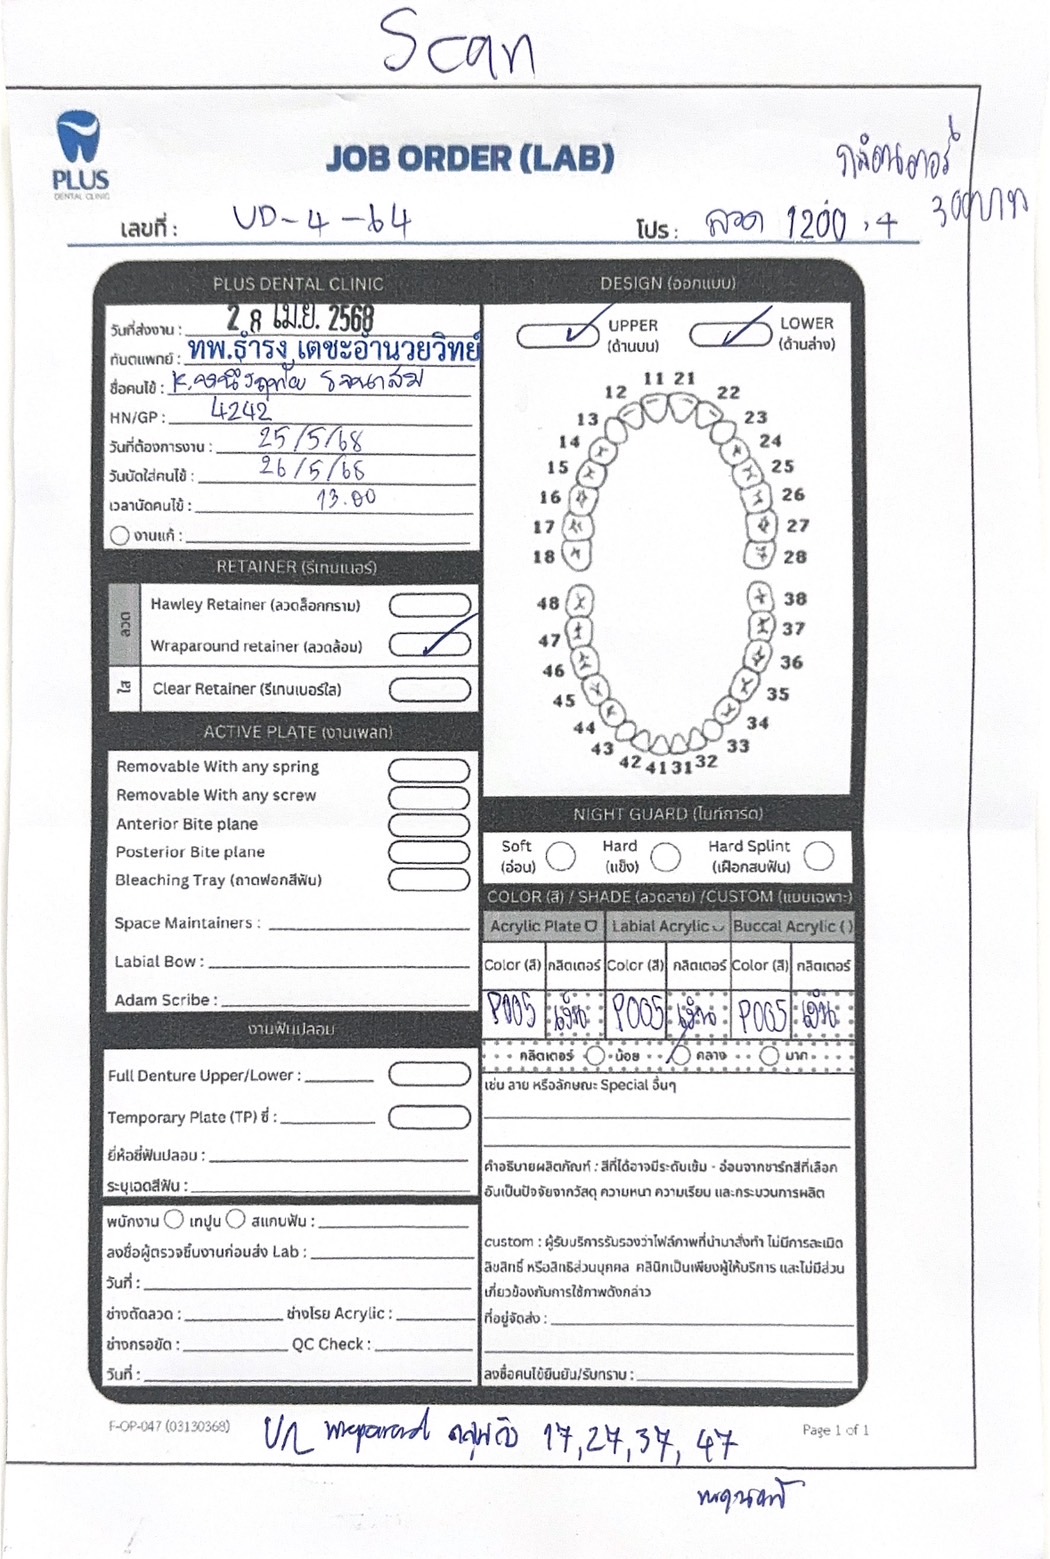 Scan
PLUS
DENTAL CLINIC
JOB ORDER (LAB)
กลิตเตอร์
300บาท
เลขที่ : UD-4-64
โปร : ลวด 1200 , 4
PLUS DENTAL CLINIC
วันที่ส่งงาน : 28 เม.ย. 2568
ทันตแพทย์ : ทพ.ธำรง เตชะอำนวยวิทย์
ชื่อคนไข้ : K.
HN/GP : 4242
วันที่ต้องการงาน : 25/5/68
วันนัดใส่คนไข้ : 26/5/68
เวลานัดคนไข้ : 13.00
งานแก้ :
RETAINER (รีเทนเนอร์)
ลวด
Hawley Retainer (ลวดล็อกกราม)
Wraparound retainer (ลวดล้อม)
ใส
Clear Retainer (รีเทนเนอร์ใส)
ACTIVE PLATE (งานเพลท)
Removable With any spring
Removable With any screw
Anterior Bite plane
Posterior Bite plane
Bleaching Tray (ถาดฟอกสีฟัน)
Space Maintainers :
Labial Bow :
Adam Scribe :
งานฟันปลอม
Full Denture Upper/Lower :
Temporary Plate (TP) ซี่ :
ยี่ห้อซี่ฟันปลอม :
ระบุเฉดสีฟัน :
พนักงาน เทปูน สแกนฟัน :
ลงชื่อผู้ตรวจชิ้นงานก่อนส่ง Lab :
วันที่ :
ช่างดัดลวด : ช่างโรย Acrylic :
ช่างกรอขัด : QC Check :
วันที่ :
DESIGN (ออกแบบ)
UPPER
(ด้านบน)
LOWER
(ด้านล่าง)
11 21
12 22
13 23
14 24
15 25
16 26
17 27
18 28
48 38
47 37
46 36
45 35
44 34
43 33
42 41 31 32
NIGHT GUARD (ไนท์การ์ด)
Soft
(อ่อน)
Hard
(แข็ง)
Hard Splint
(เฝือกสบฟัน)
COLOR (สี) / SHADE (ลวดลาย) /CUSTOM (แบบเฉพาะ)
Acrylic Plate Labial Acrylic Buccal Acrylic ( )
Color (สี) กลิตเตอร์ Color (สี) กลิตเตอร์ Color (สี) กลิตเตอร์
P005 เงิน P005 เงิน P005 เงิน
กลิตเตอร์ น้อย กลาง มาก
เช่น ลาย หรือลักษณะ Special อื่นๆ
คำอธิบายผลิตภัณฑ์ : สีที่ได้อาจมีระดับเข้ม - อ่อนจากชาร์ทสีที่เลือก
อันเป็นปัจจัยจากวัสดุ ความหนา ความเรียบ และกระบวนการผลิต
custom : ผู้รับบริการรับรองว่าไฟล์ภาพที่นำมาสั่งทำ ไม่มีการละเมิด
ลิขสิทธิ์ หรือสิทธิส่วนบุคคล คลินิกเป็นเพียงผู้ให้บริการ และไม่มีส่วน
เกี่ยวข้องกับการใช้ภาพดังกล่าว
ที่อยู่จัดส่ง :
ลงชื่อคนไข้ยืนยัน/รับทราบ :
F-OP-047 (03130368)
Page 1 of 1
U/L wraparound 17,27,37, 47